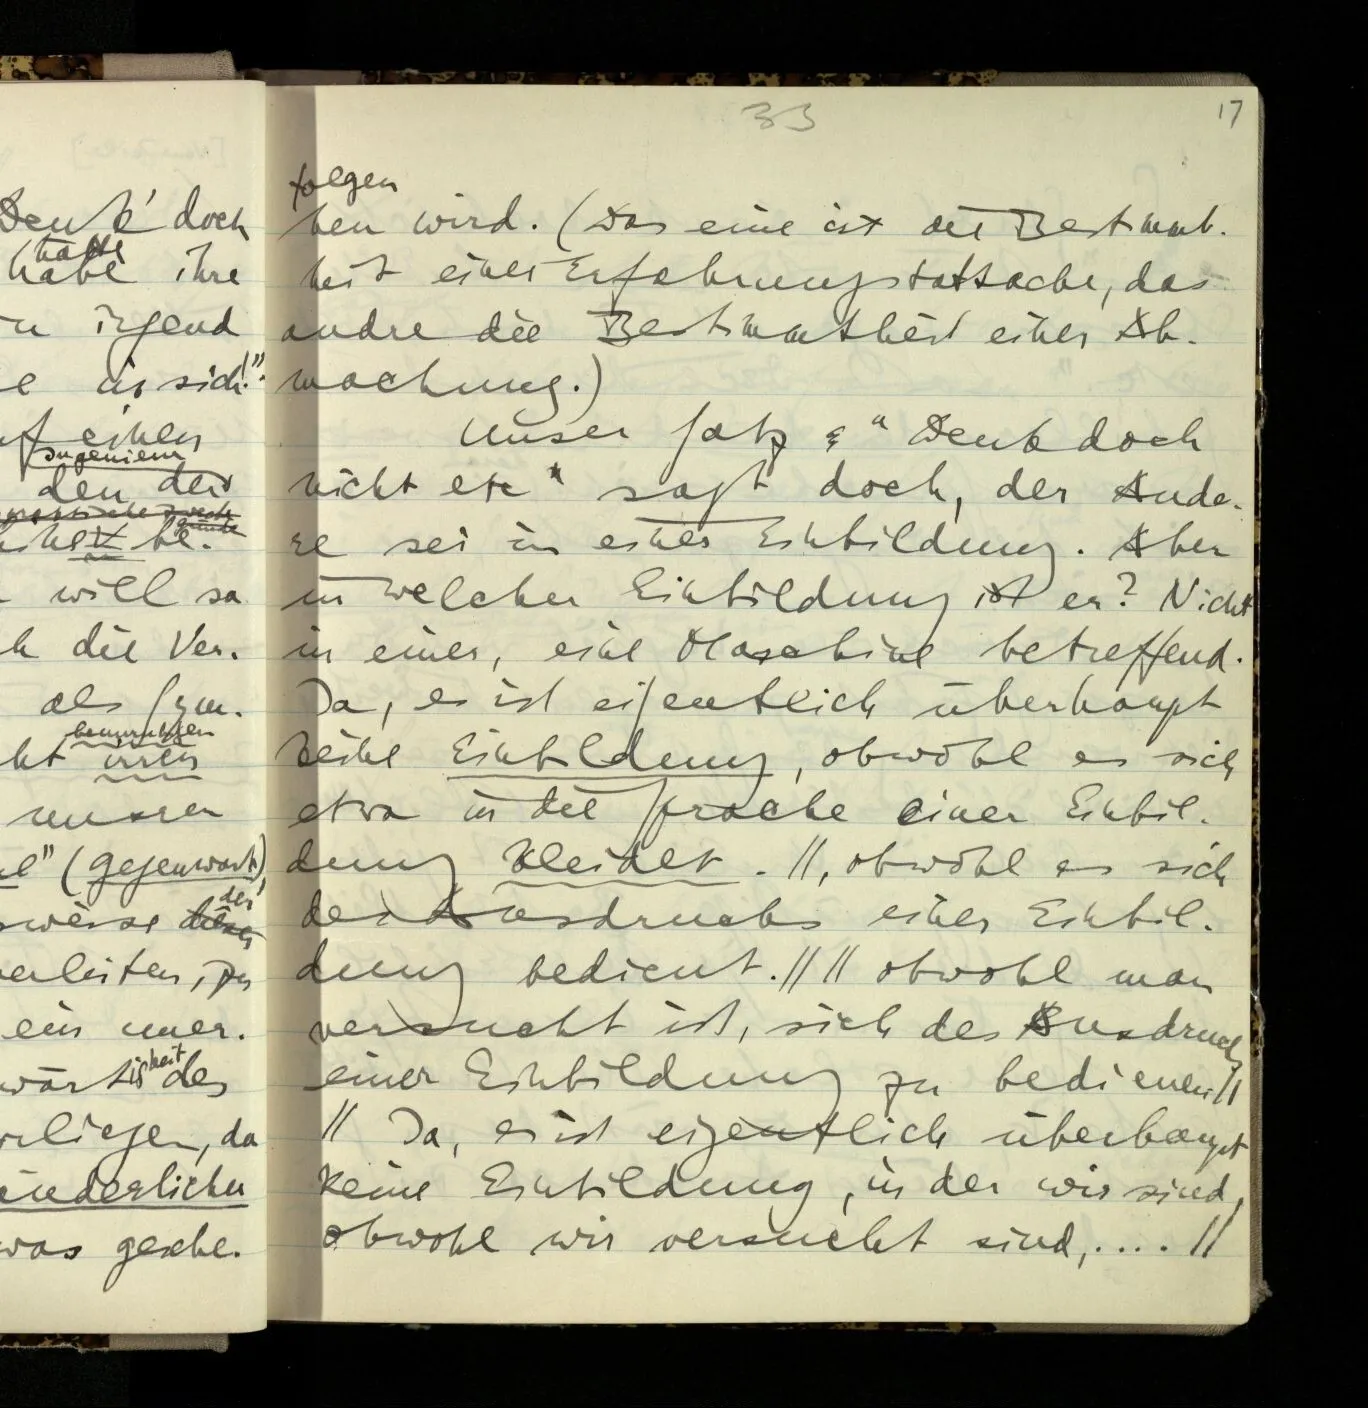 33
17
Denk' doch
hatte
habe ihre
irgend
in sich!"
einen
Ingenieur
den der
will so
die Ver-
als Sym-
beunruhigen
irren
unsrer
" (Gegenwart)
der
dieser
verleiten, zu
ein uner-
heit
des
vorliegen, da
was gesche-
folgen
hen wird. (Das eine ist die Bestimmt-
heit einer Erfahrungstatsache, das
andre die Bestimmtheit einer Ab-
machung.)
Unser Satz: "Denk doch
nicht etc" sagt doch, der Ande-
re sei in einer Einbildung. Aber
in welcher Einbildung ist er? Nicht
in einer, eine Maschine betreffend.
Ja, es ist eigentlich überhaupt
keine Einbildung, obwohl es sich
etwa in die Sprache einer Einbil-
dung kleidet. //, obwohl es sich
des Ausdrucks einer Einbil-
dung bedient.// // obwohl man
versucht ist, sich des Ausdrucks
einer Einbildung zu bedienen//
// Ja, es ist eigentlich überhaupt
keine Einbildung, in der wir sind,
obwohl wir versucht sind,.... //